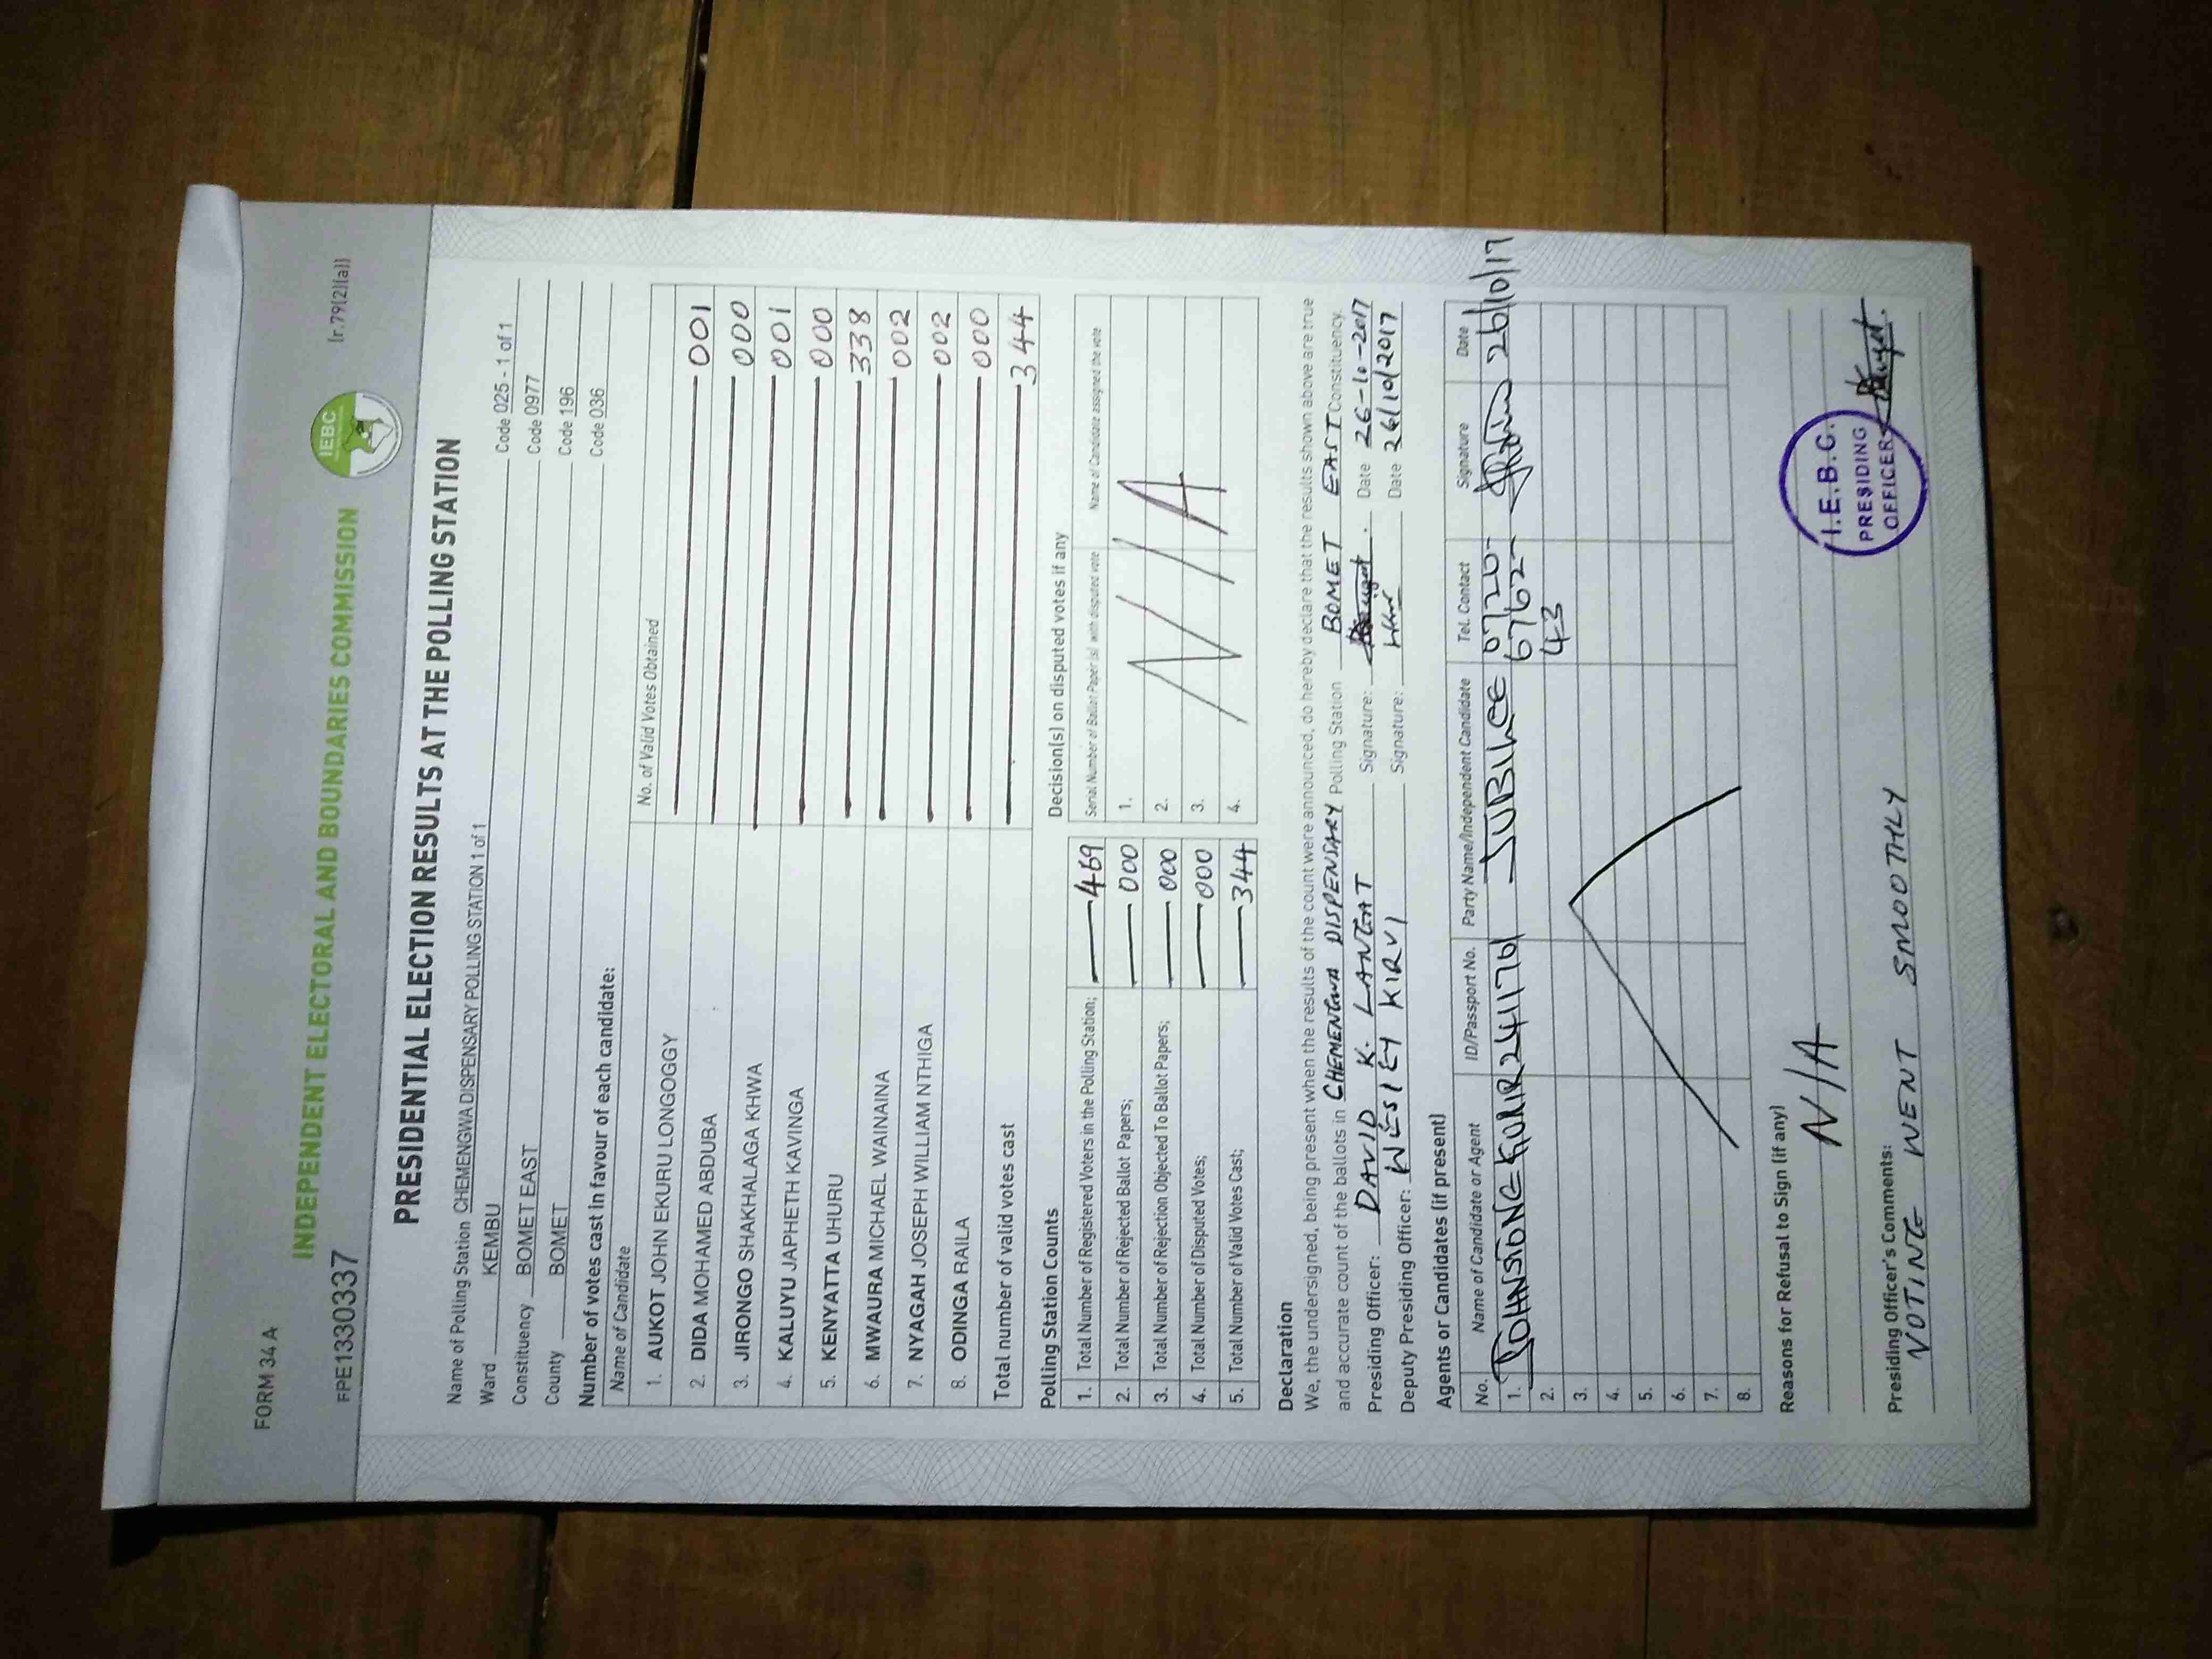 FORM 34 A (r.79(2)(a))
INDEPENDENT ELECTORAL AND BOUNDARIES COMMISSION
IEBC
FPE1330337
PRESIDENTIAL ELECTION RESULTS AT THE POLLING STATION
Name of Polling Station CHEMENGWA DISPENSARY POLLING STATION 1 of 1 Code 025 - 1 of 1
Ward KEMBU Code 0977
Constituency BOMET EAST Code 196
County BOMET Code 036
Number of votes cast in favour of each candidate:
Name of Candidate No. of Valid Votes Obtained
1. AUKOT JOHN EKURU LONGOGGY 001
2. DIDA MOHAMED ABDUBA 000
3. JIRONGO SHAKHALAGA KHWA 001
4. KALUYU JAPHETH KAVINGA 000
5. KENYATTA UHURU 338
6. MWAURA MICHAEL WAINAINA 002
7. NYAGAH JOSEPH WILLIAM NTHIGA 002
8. ODINGA RAILA 000
Total number of valid votes cast 344
Polling Station Counts
1. Total Number of Registered Voters in the Polling Station; 469
2. Total Number of Rejected Ballot Papers; 000
3. Total Number of Rejection Objected To Ballot Papers; 000
4. Total Number of Disputed Votes; 000
5. Total Number of Valid Votes Cast; 344
Decision(s) on disputed votes if any
Serial Number of Ballot Paper (s) with disputed vote Name of Candidate assigned the vote
1.
2.
3.
4.
N/A
Declaration
We, the undersigned, being present when the results of the count were announced, do hereby declare that the results shown above are true
and accurate count of the ballots in CHEMENGWA DISPENSARY Polling Station BOMET EAST Constituency.
Presiding Officer: DAVID K. LANGAT Signature: Date 26-10-2017
Deputy Presiding Officer: WESLEY KIRUI Signature: Date 26/10/2017
Agents or Candidates (if present)
No. Name of Candidate or Agent ID/Passport No. Party Name/Independent Candidate Tel. Contact Signature Date
1. JOHNSTONE 2411761 JUBILEE 0720- 26/10/17
6762-
2. 43
3.
4.
5.
6.
7.
8.
Reasons for Refusal to Sign (if any)
N/A
Presiding Officer's Comments:
VOTING WENT SMOOTHLY
I.E.B.C.
PRESIDING
OFFICER